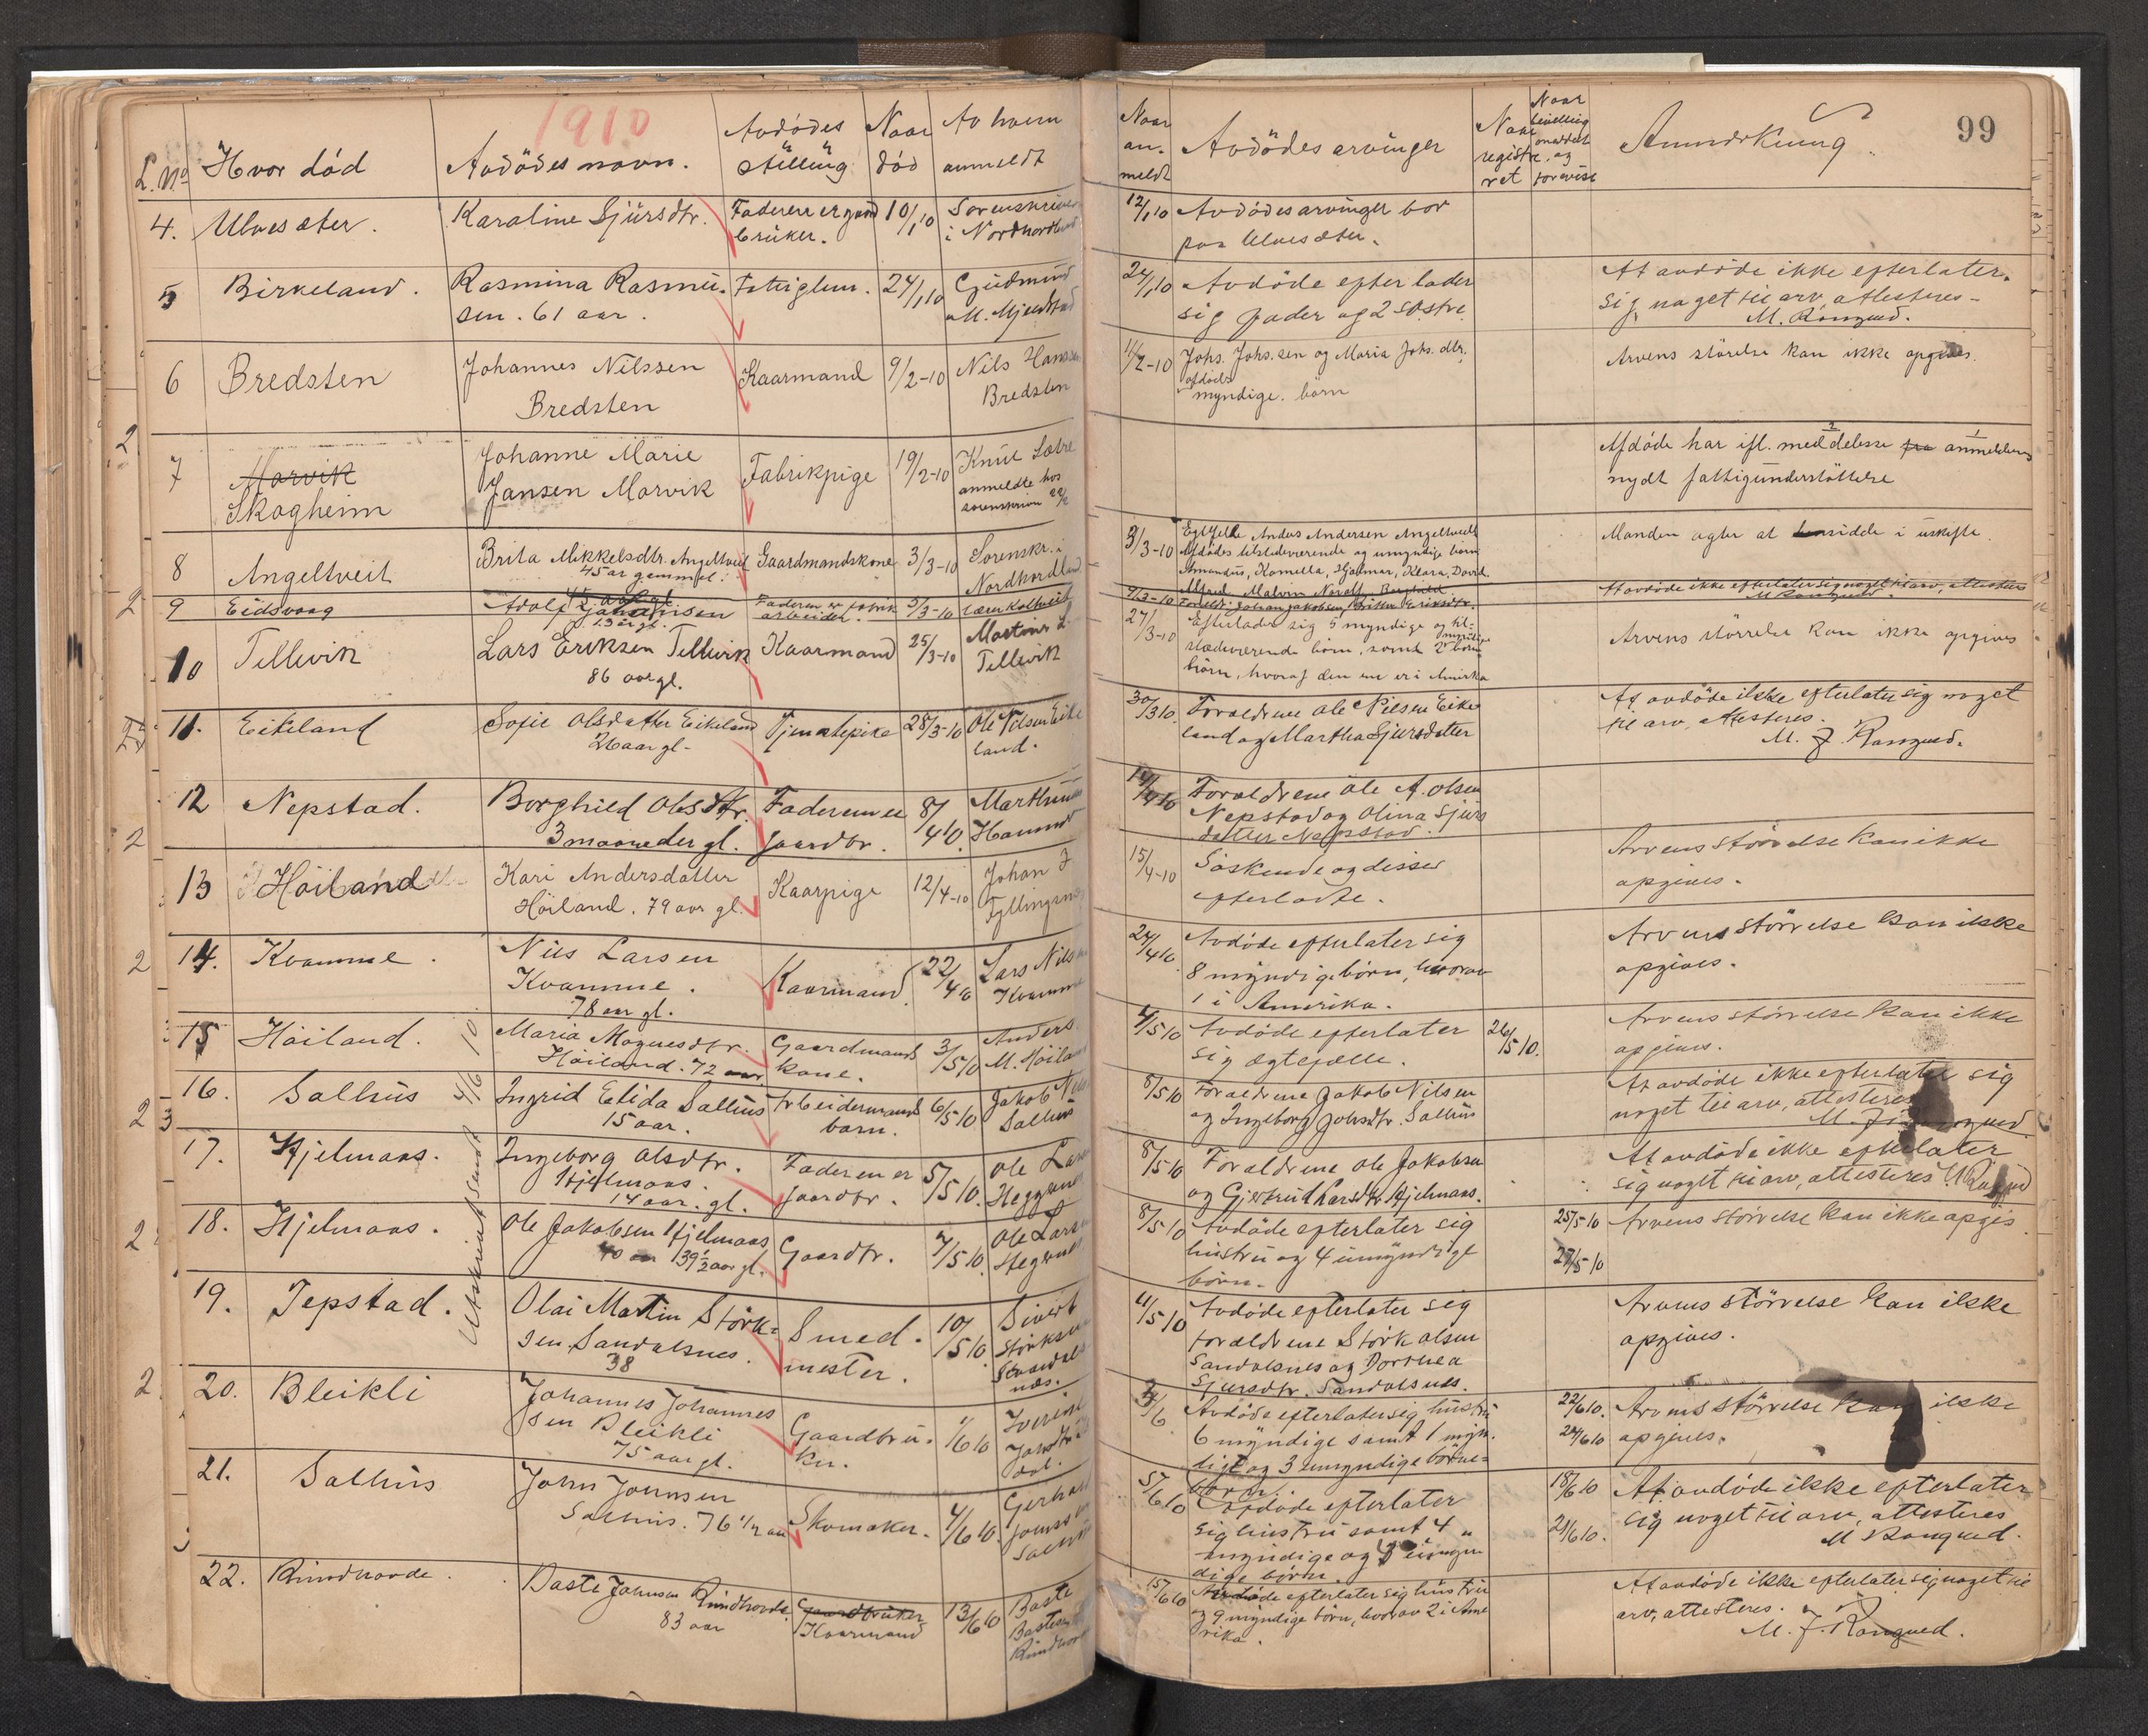 1910
99
L. No
Hvor död
Avdödes navn.
Avdödes
stilling
Naar
död
Av hvem
anmeldt
Naar
an-
meldt
Avdödes arvinger
Naar
registre-
ret
Naar
bevilling
meddelt
og
forevist
Anmerkning
4. Ulvesæter.
Karoline Sjursdtr.
Faderen er gaard
bruker.
10/1 10
Sorenskriver
i Nordhordland
12/1 10
Avdödes arvinger bor
paa Ulvesæter.
5 Birkeland.
Rasmina Rasmu-
sen. 61 aar.
Fatiglem.
24/1 10
Gudmund
M. Mjeldstad
24/1 10
Avdöde efterlader
sig fader og 2 söstre
At avdöde ikke efterlater
sig noget til arv, attesteres-
M. Rongved.
6 Bredsten
Johannes Nilssen
Bredsten
Kaarmand
9/2-10
Nils Hanssen
Bredsten
11/2-10
Johs. Johs.sen og Maria Johs.dtr.
afdödes
myndige. börn
Arvens störelse kan ikke opgives.
7 Marvik
Skogheim
Johanne Marie
Jansen Marvik
Fabrikpige
19/2-10
Knut Sætre
anmeldte hos
sorenskriver 22/2
Afdöde har ifl. meddelelse fra anmelderen
nydt fattigunderstöttelse
8 Angeltveit
Brita Mikkelsdtr. Angeltveit
45 aar gammel.
Gaardmandskone
3/3-10
Sorenskr. i
Nordhordland
3/3-10
Egtefelle Anders Andersen Angeltveit
Afdödes tilstedeværende og umyndige börn
Amandus, Kornelia, Hjalmar, Klara, David.
Alfred Malvin Norolf, Borghild
Manden agter at hensidde i uskifte.
9 Eidsvaag
Adolf Johannsen
13 aar gl.
Faderen er fabrik
arbeider.
5/3-10
Lærer Koltveit
7/3-10
Foreldr. Johan Jakobsen, Brithe Eriksdtr.
At avdöde ikke efterlater sig noget til arv, attesteres
M Rongved.
10 Tellevik
Lars Eriksen Tellevik
86 aar gl.
Kaarmand
25/3-10
Martinus L
Tellevik
27/3-10
Efterlader sig 5 myndige og til-
stedeværende börn, samt 2 myndige barne
börn, hvoraf den ene er i Amerika
Arvens störrelse kan ikke opgives
11. Eikeland
Sofie Olsdatter Eikeland
26 aar gl-
Tjenstepike
28/3-10
Ole Nilsen Eike
land.
30/3 10.
Foraldrene Ole Nilsen Eike
land og Martha Sjursdatter
At avdöde ikke efterlater sig noget
til arv, attesteres.
M. J. Rongved.
12 Nepstad.
Borghild Olesdtr.
3 maaneder gl.
Faderen er
gaardbr.
8/4 10.
Marthinus
Hammer
14/4 10
Foraldrene Ole A. Olsen
Nepstad og Olina Sjurs
datter Nepstad.
13 Höiland
Kari Andersdatter
Höiland. 79 aar gl.
Kaarpige
12/4-10
Johan J
Fyllingsnes
15/4-10
Söskende og disses
efterladte.
Arvens störrelse kan ikke
opgives.
14. Kvamme.
Nils Larsen
Kvamme.
78 aar gl.
Kaarmand.
22/4 10
Lars Nilsen
Kvamme
24/4 10.
Avdöde efterlater sig
8 myndige börn, hvorav
1 i Amerika.
Arvens störrelse kan ikke
opgives.
15 Höiland.
Maria Mognesdtr.
Höiland. 72 aar
Gaardmands
kone.
3/5 10
Anders
M. Höiland
4/5 10
Avdöde efterlater
sig ægtefælle.
26/5 10.
Arvens störrelse kan ikke
opgives.
16. Salhus
Ingrid Elida Salhus
15 aar.
Arbeidermands
barn.
6/5 10
Jakob Nilsen
Salhus
8/5 10
Foraldrene Jakob Nilsen
og Ingeborg Johsdtr. Salhus
At avdöde ikke efterlater sig
noget til arv, attesteres
M. J. Rongved.
17. Hjelmaas.
Ingeborg Olsdtr.
Hjelmaas.
14 aar. gl.
Faderen er
gaardbr.
5/5 10.
Ole Larsen
Heggernes
8/5 10
Foraldrene Ole Jakobsen
og Gjertrud Larsdtr. Hjelmaas.
At avdöde ikke efterlater
sig noget til arv, attesteres M Rongved
18. Hjelmaas.
Ole Jakobsen Hjelmaas
40 aar 39 1/2 aar gl.
Gaardbr.
7/5 10.
Ole Larsen
Hegernes
8/5 10
Avdöde efterlater sig
hustru og 4 umyndige
börn.
25/5 10
27/5-10
Arvens störrelse kan ikke opgis
Utskrift sendt 4/6 10
19. Jepstad.
Olai Martin Störk-
sen Sandalsnes.
38
Smed-
mester.
10/5 10
Sivert
Störksen
Sandals-
næs.
11/5 10
Avdöde efterlater sig
foraldrene Störk Olsen
Sandalsnes og Dorthea
Sjursdtr. Sandalsnes.
Arvens störrelse kan ikke
opgives.
20. Bleikli
Johannes Johannes
sen Bleikli
75 aar gl.
Gaardbru-
ker.
1/6 10
3/6
Avdöde efterlater sig hustru
6 myndige samt 1 myn-
dige og 3 umyndige börne-
börn.
22/6 10.
24/6 10
Arvens störrelse kan ikke
opgives.
21. Salhus
John Jonnsen
Salhus. 76 1/2 aar
Skomaker.
4/6 10.
Gerhard
Jonssen
Salhus
5/6 10
Avdöde efterlater
sig hustru samt 4
myndige og umyn-
dige börn.
18/6 10
21/6 10.
At avdöde ikke efterlater
sig noget til arv, attesteres
M Rongved.
22. Rindhovde.
Baste Johnsen Rindhovde.
83 aar
Gaardbruker
Kaarmand
13/6 10
Baste
Bastesen
Rindhovde
15/6 10
Avdöde efterlater sig hustru
og 9 myndige börn, hvorav 2 i Ame
rika.
At avdöde ikke efterlater sig noget til
arv, attesteres.
M. J. Rongved.